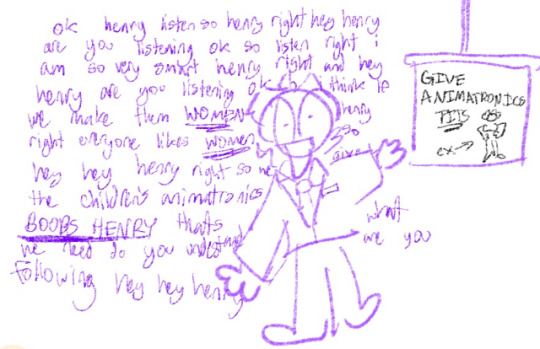 ok henry listen so henry right hey henry
are you listening ok so listen right i
am so very smart henry right and hey
henry are you listening ok think if
we make them WOMEN henry
right everyone likes women so
hey hey henry right so we give
the children's animatronics
BOOBS HENRY thats what
we need do you understand are you
following hey hey henry
GIVE
ANIMATRONICS
TITS
ex →